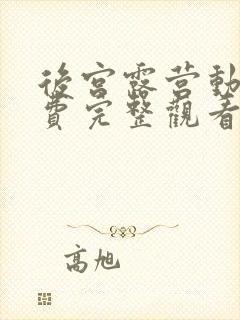 後宮露营動
費完整觀看
高旭